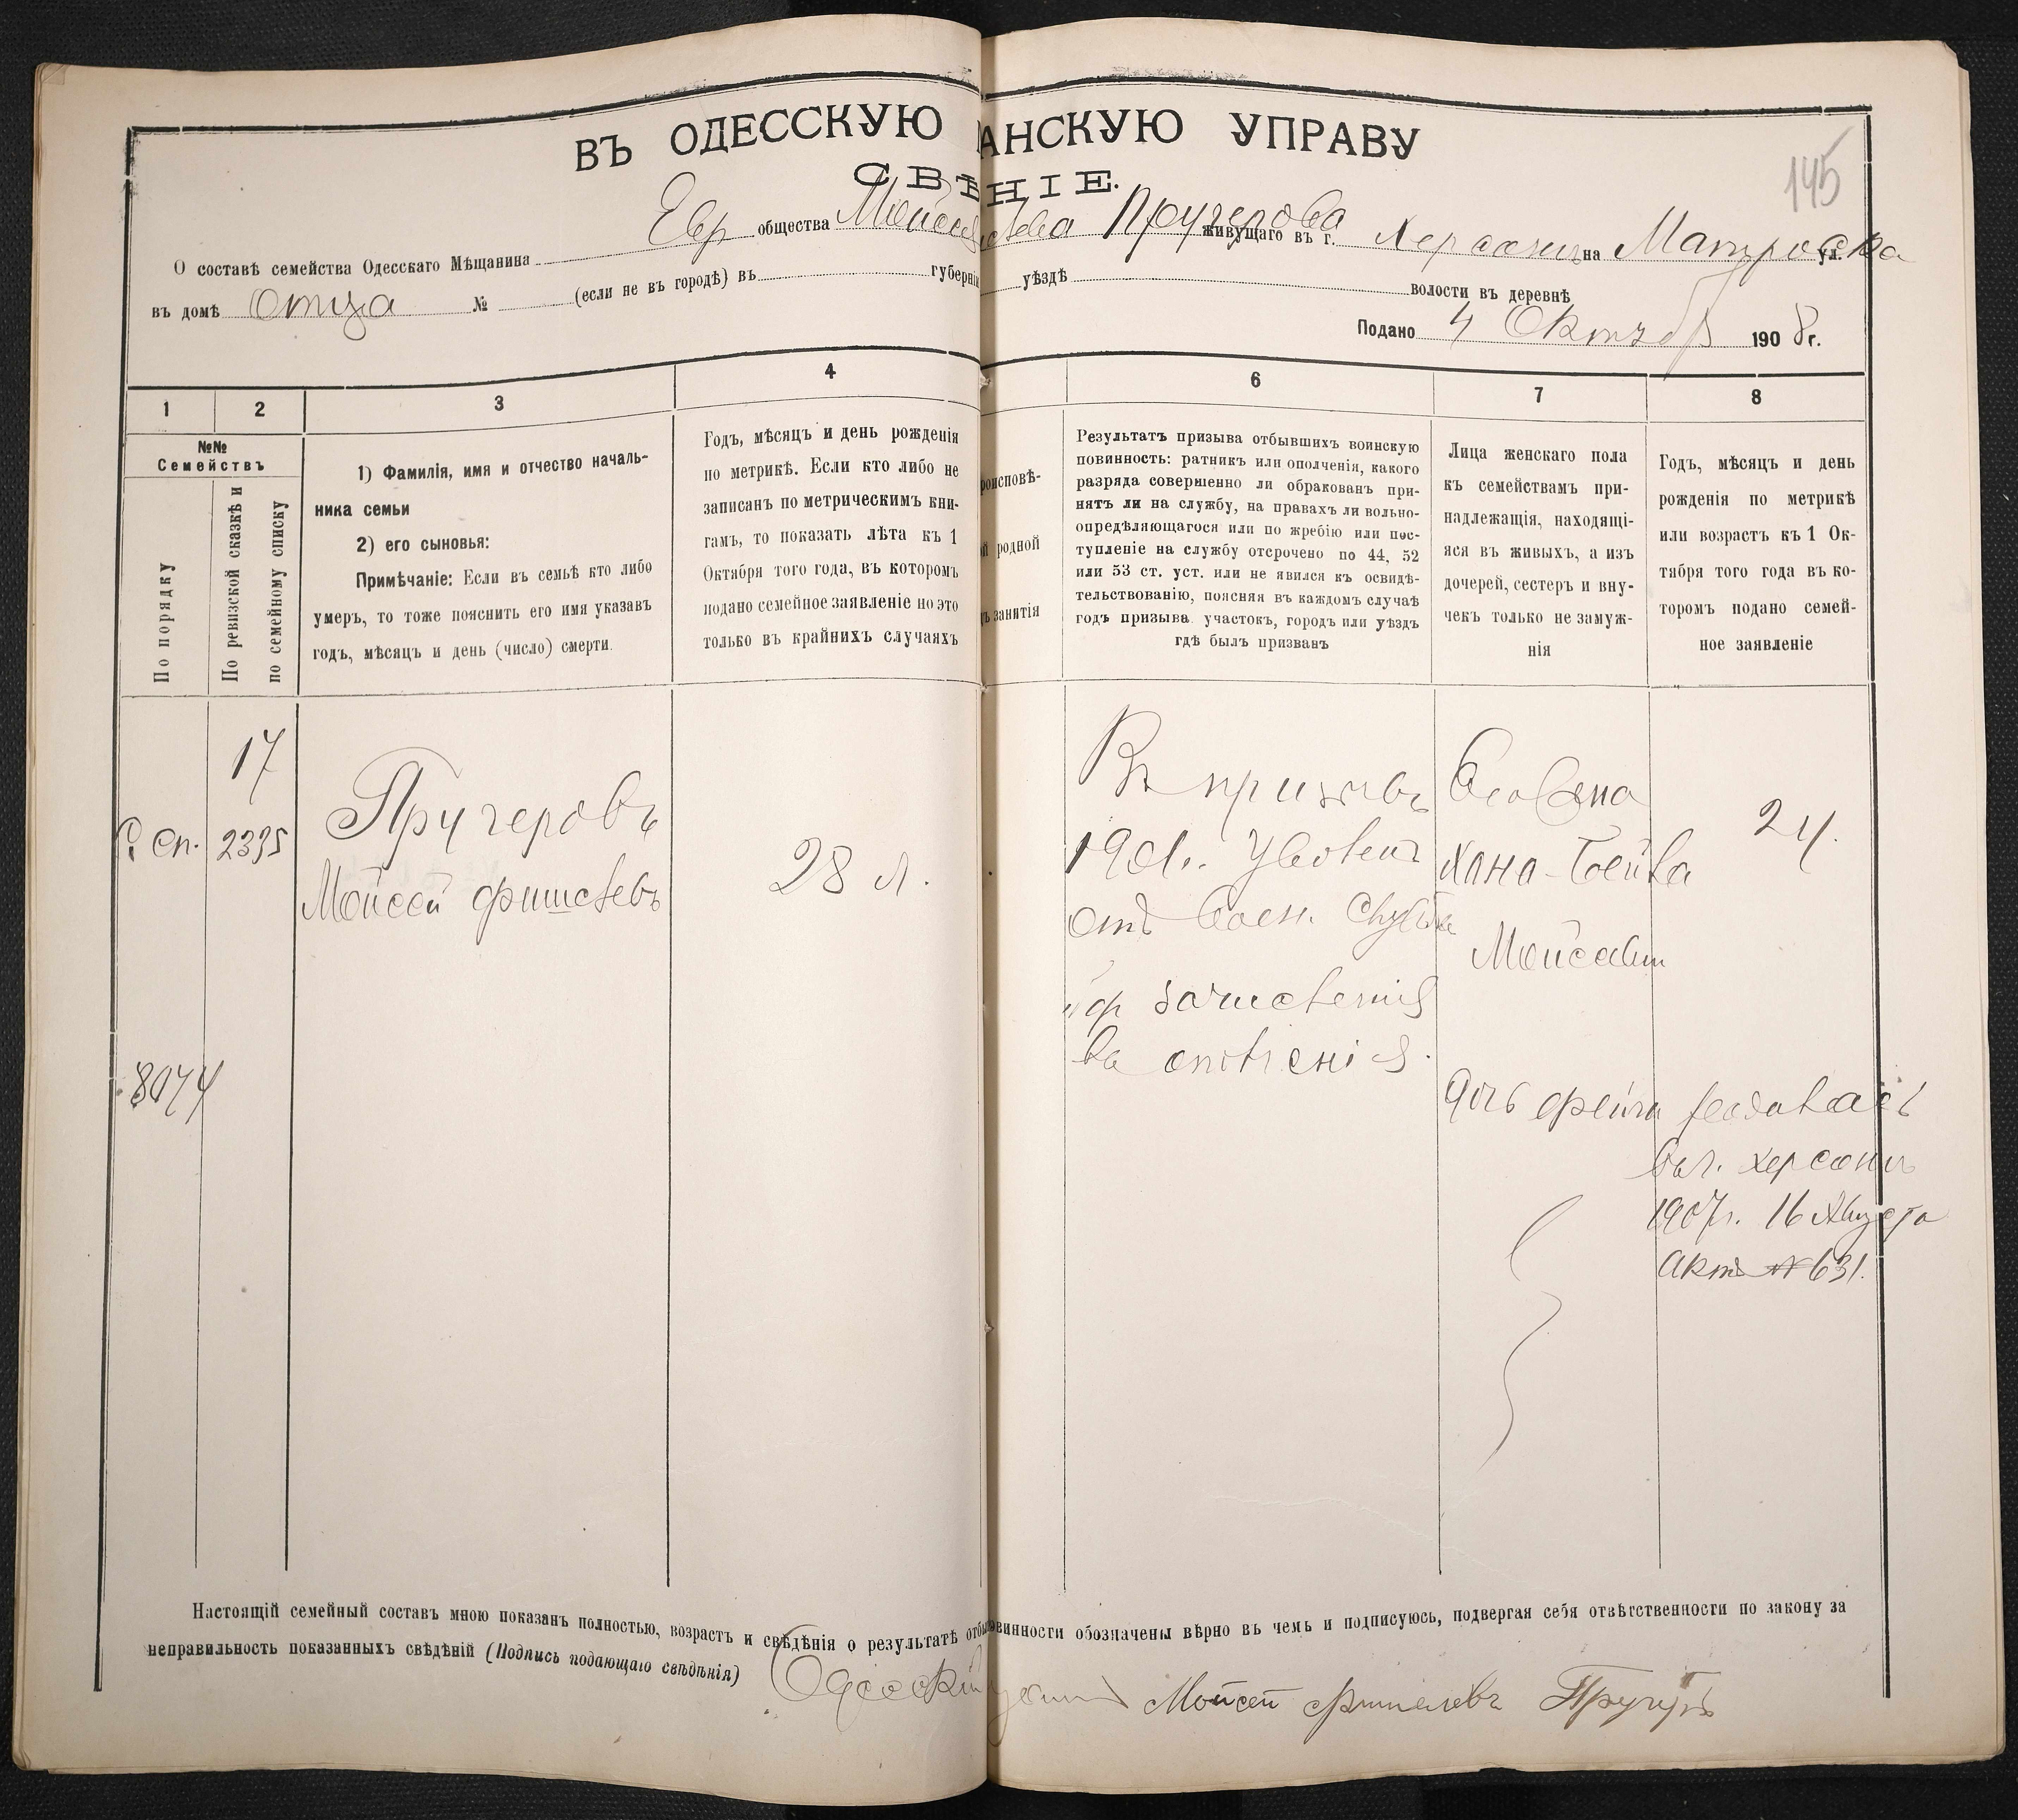 ВЪ ОДЕССКУЮ АНСКУЮ УПРАВУ
145
СВѢНІЕ.
О составѣ семейства Одесскаго Мѣщанина Евр общества Пручерова живущаго въ г. Херсонъ на ул.
въ домѣ Отца № (если не въ городѣ) въ губерніи уѣздѣ волости въ деревнѣ
Подано 4 1908 г.
1 2 3 4 6 7 8
№№
Семействъ
По порядку
По ревизской сказкѣ и
по семейному списку
1) Фамилія, имя и отчество началь-
ника семьи
2) его сыновья:
Примѣчаніе: Если въ семьѣ кто либо
умеръ, то тоже пояснить его имя указавъ
годъ, мѣсяцъ и день (число) смерти.
Годъ, мѣсяцъ и день рожденія
по метрикѣ. Если кто либо не
записанъ по метрическимъ кни-
гамъ, то показать лѣта къ 1
Октября того года, въ которомъ
подано семейное заявленіе но это
только въ крайнихъ случаяхъ
роисповѣ-
й родной
занятія
Результатъ призыва отбывшихъ воинскую
повинность: ратникъ или ополченія, какого
разряда совершенно ли обракованъ при-
нятъ ли на службу, на правахъ ли вольно-
опредѣляющагося или по жребію или пос-
тупленіе на службу отсрочено по 44, 52
или 53 ст. уст. или не явился къ освидѣ-
тельствованію, поясняя въ каждомъ случаѣ
годъ призыва участокъ, городъ или уѣздъ
гдѣ былъ призванъ
Лица женскаго пола
къ семействамъ при-
надлежащія, находящі-
яся въ живыхъ, а изъ
дочерей, сестеръ и вну-
чекъ только не замуж-
нія
Годъ, мѣсяцъ и день
рожденія по метрикѣ
или возрастъ къ 1 Ок-
тября того года въ ко-
торомъ подано семей-
ное заявленіе
17
сп. 2335
Пручеровъ
Мойсей Фишелевъ
28 л.
Въ призывъ
1901 г. уволенъ
отъ воен. службы
зачисленія
въ
жена
Хана-Бейла
24.
8074
Дочь Фейга
въ г. Херсонъ
1907 г. 16 Августа
актъ № 631.
Настоящій семейный составъ мною показанъ полностью, возрастъ и свѣдѣнія о результатѣ отбы овинности обозначены вѣрно въ чемъ и подписуюсь, подвергая себя отвѣтственности по закону за
неправильность показанныхъ свѣдѣній (Подпись подающаго свѣдѣнія) Одесскій Мойсей Фишелевъ Пручеръ